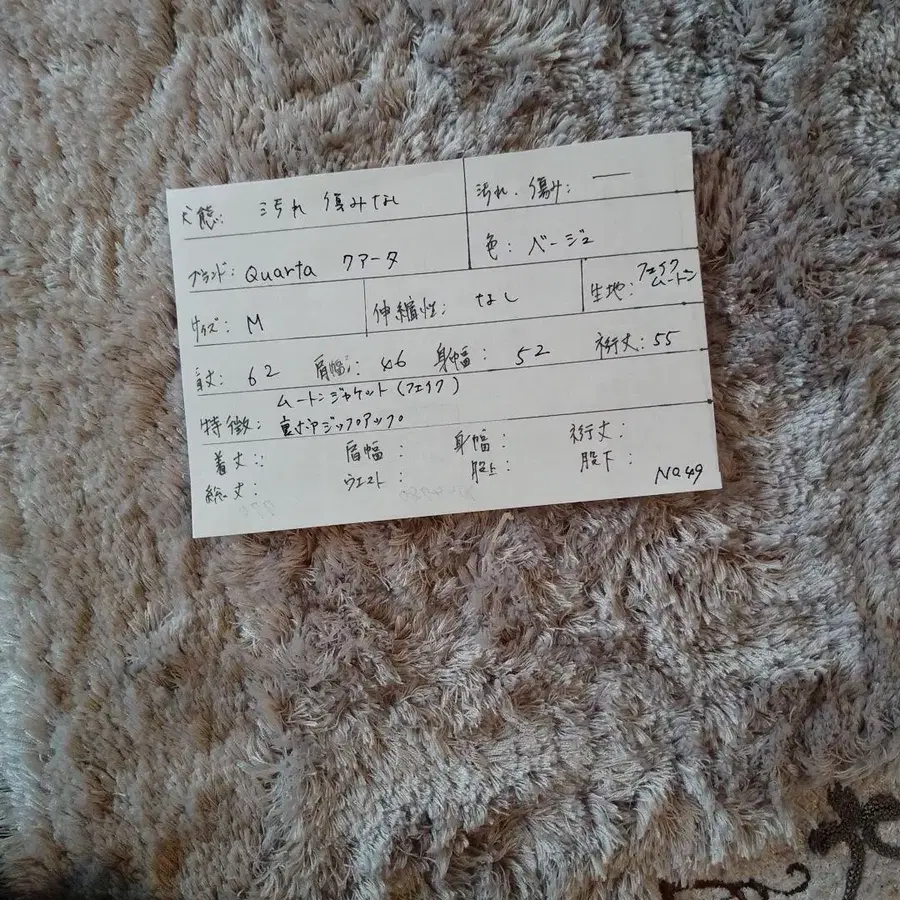 状態: 汚れ 傷みなし
汚れ、傷み: ー
ブランド: Quarta クアータ
色: ベージュ
サイズ: M
伸縮性: なし
生地: フェイクムートン
着丈: 62 肩幅: 46 身幅: 52 裄丈: 55
特徴: ムートンジャケット(フェイク)
裏ボアジップアップ
着丈: 肩幅: 身幅: 裄丈:
総丈: ウエスト: 股上: 股下:
No.49